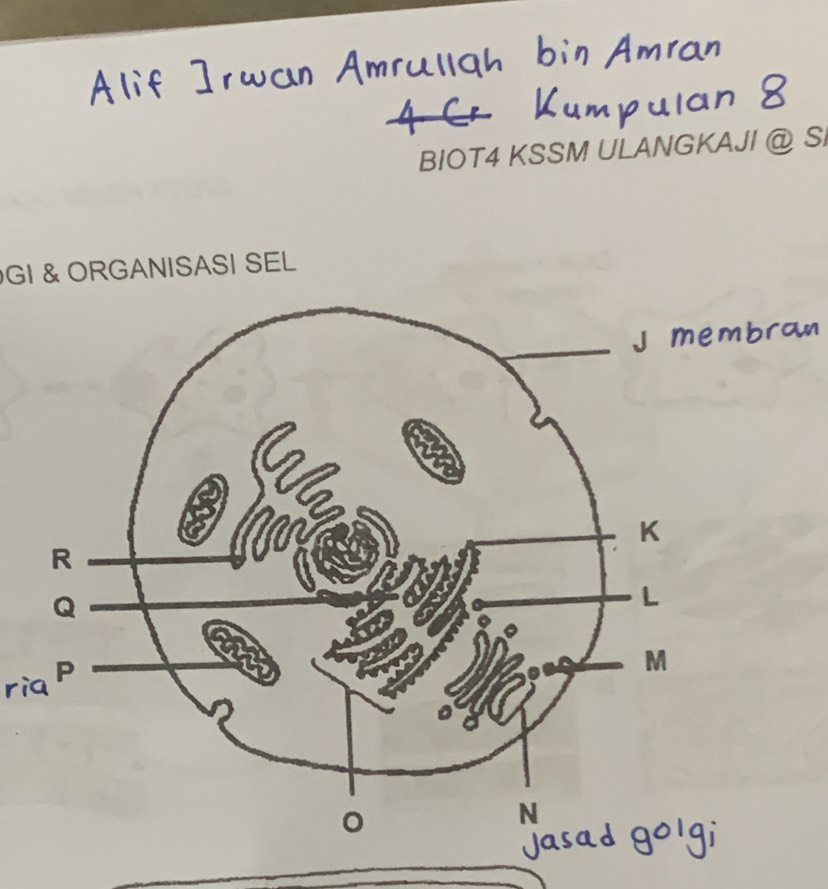 Alif Irwan Amrullah bin Amran
Kumpulan 8
BIOT4 KSSM ULANGKAJI @
& ORGANISASI SEL
J membran
K
R
L
Q
M
ria P
O
N
jasad golgi